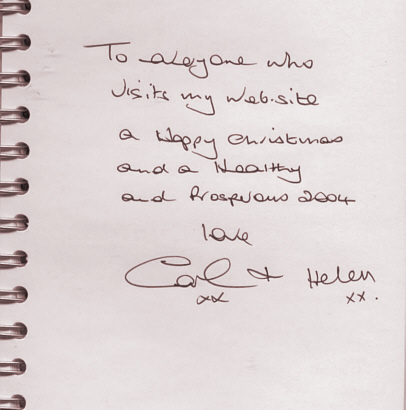 To everyone who
visits my web.site
a Happy christmas
and a Healthy
and Prosperous 2004
love
Carl + Helen
xx xx.